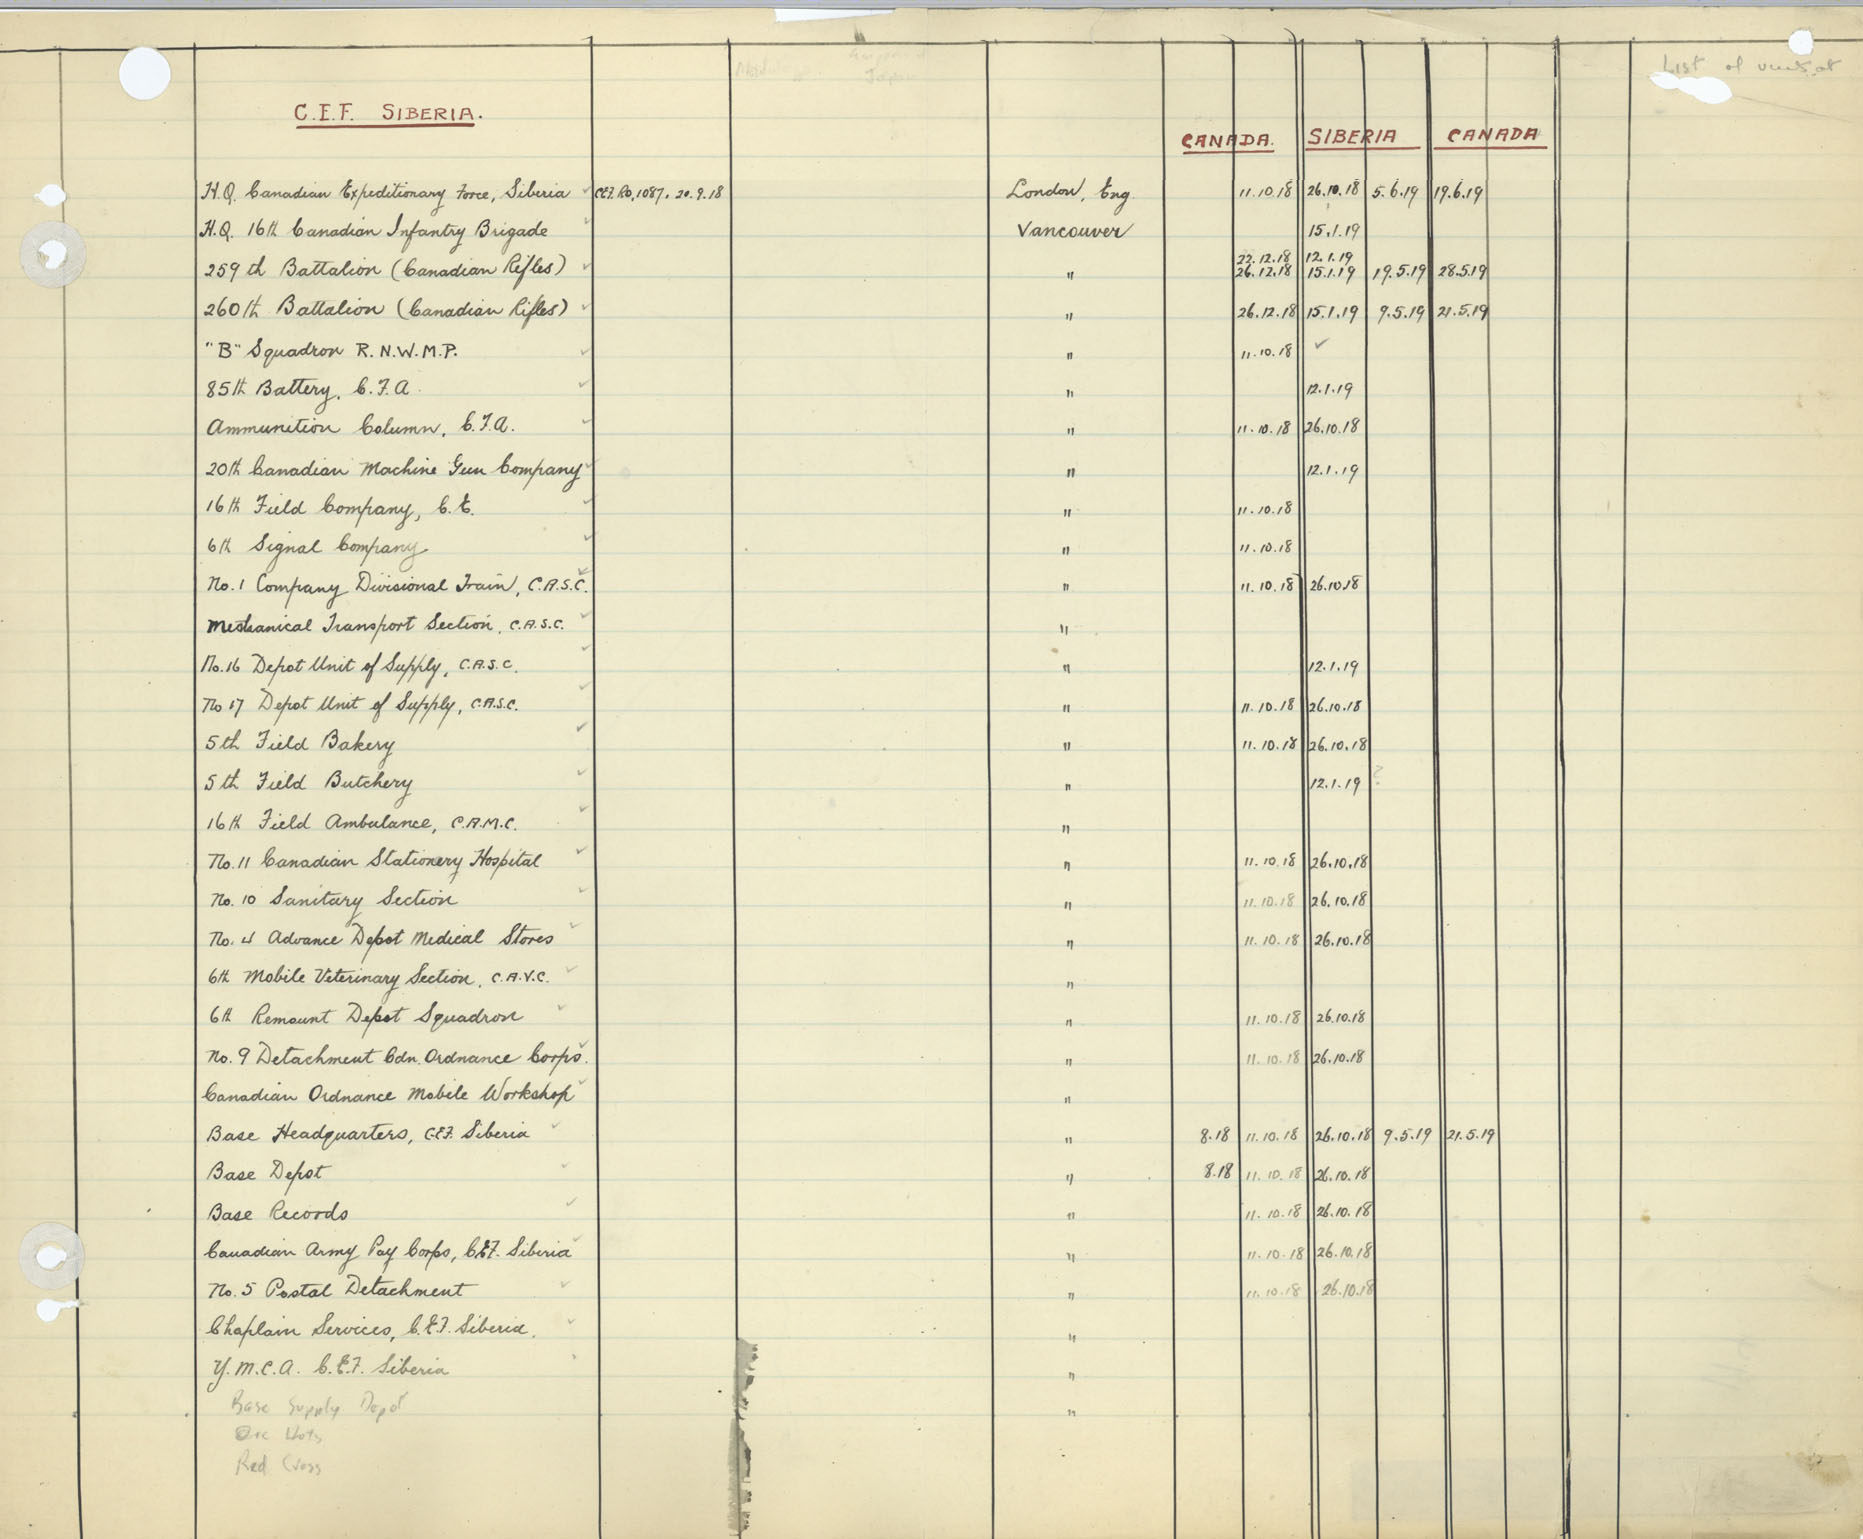 List of
Japan
C.E.F. SIBERIA.
CANADA. SIBERIA CANADA
H.Q. Canadian Expeditionary Force, Siberia CEF. RO. 1087. 20.9.18 London, Eng. 11.10.18 26.10.18 5.6.19 19.6.19
H.Q. 16th Canadian Infantry Brigade Vancouver 15.1.19
22.12.18 12.1.19
259th Battalion (Canadian Rifles) " 26.12.18 15.1.19 19.5.19 28.5.19
260th Battalion (Canadian Rifles) " 26.12.18 15.1.19 9.5.19 21.5.19
"B" Squadron R.N.W.M.P. " 11.10.18
85th Battery. C.F.A. " 12.1.19
Ammunition Column, C.F.A. " 11.10.18 26.10.18
20th Canadian Machine Gun Company " 12.1.19
16th Field Company, C.E. " 11.10.18
6th Signal Company " 11.10.18
No.1 Company Divisional Train, C.A.S.C. " 11.10.18 26.10.18
Mechanical Transport Section, C.A.S.C. "
No.16 Depot Unit of Supply, C.A.S.C. " 12.1.19
No 17 Depot Unit of Supply, C.A.S.C. " 11.10.18 26.10.18
5th Field Bakery " 11.10.18 26.10.18
5th Field Butchery " 12.1.19 ?
16th Field Ambulance, C.A.M.C. "
No.11 Canadian Stationery Hospital " 11.10.18 26.10.18
No. 10 Sanitary Section " 11.10.18 26.10.18
No. 4 Advance Depot Medical Stores " 11.10.18 26.10.18
6th Mobile Veterinary Section, C.A.V.C. "
6th Remount Depot Squadron " 11.10.18 26.10.18
No. 9 Detachment Cdn. Ordnance Corps. " 11.10.18 26.10.18
Canadian Ordnance Mobile Workshop "
Base Headquarters, C.E.F. Siberia " 8.18 11.10.18 26.10.18 9.5.19 21.5.19
Base Depot " 8.18 11.10.18 26.10.18
Base Records " 11.10.18 26.10.18
Canadian Army Pay Corps, C.E.F. Siberia " 11.10.18 26.10.18
No. 5 Postal Detachment " 11.10.18 26.10.18
Chaplain Services, C.E.F. Siberia. "
Y.M.C.A. C.E.F. Siberia "
Base Supply Depot "
Red Cross